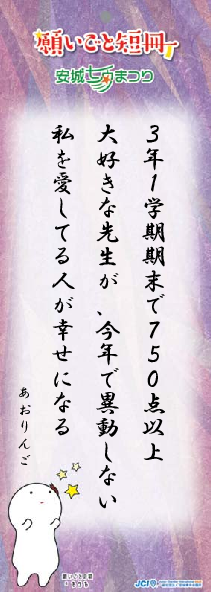 願いごと短冊
安城七夕まつり
3年1学期期末で750点以上
大好きな先生が、今年で異動しない
私を愛してる人が幸せになる
あおりんご
JCI